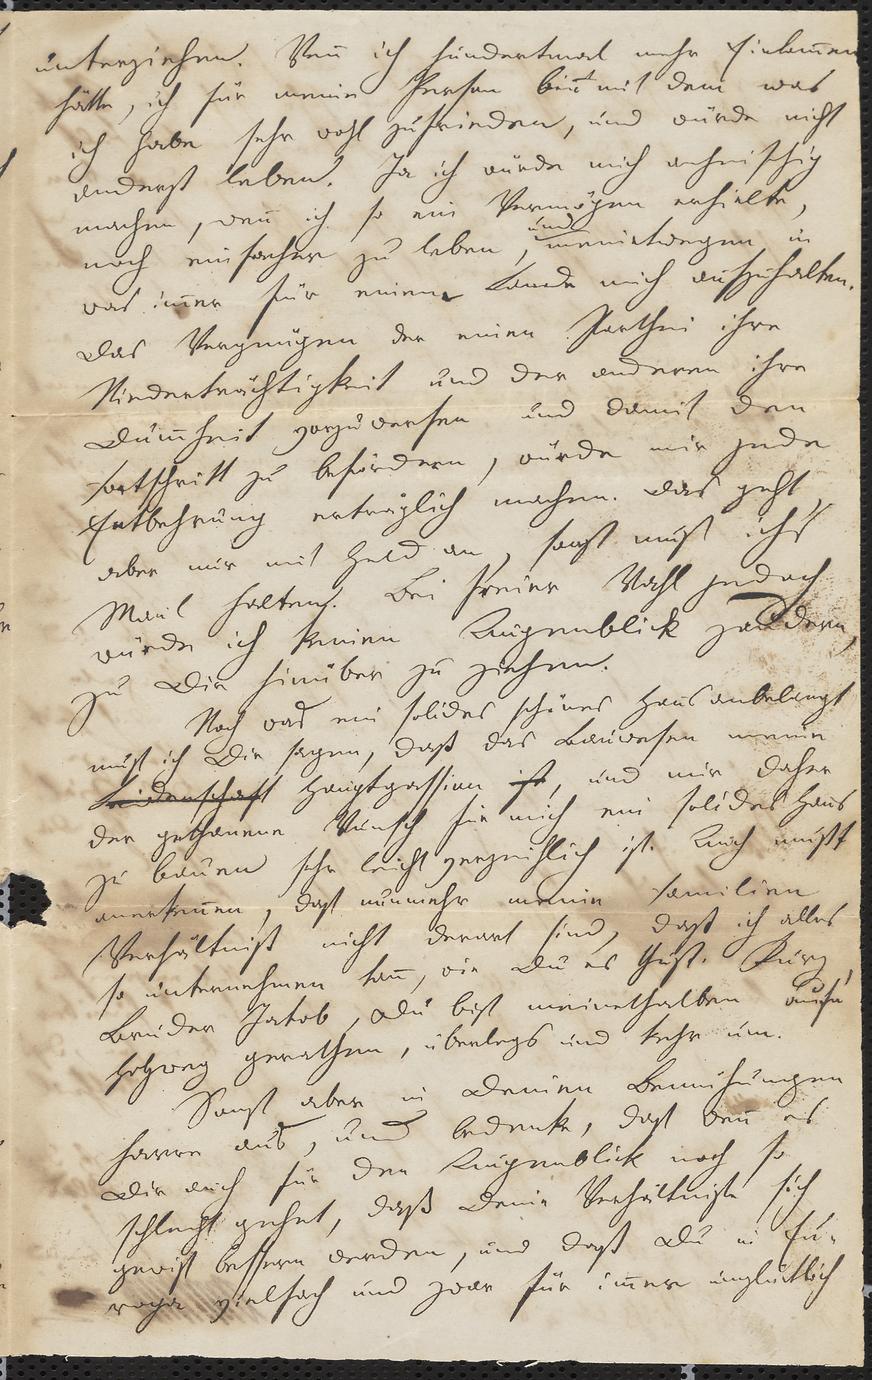 unterziehen. Wen̄ ich hundertmal mehr Einkom̄en
hätte, ich für meine Person bin mit dem was
ich habe sehr wohl zufrieden, und würde nicht
anderst leben. Ja ich würde mich anheischig
machen, wen̄ ich so ein Vermögen erhielte,
noch einfacher zu leben, und meinetwegen in
was im̄er für einem Lande mich aufzuhalten.
Das Vergnügen der einen Parthei ihre
Niederträchtigkeit und der anderen ihre
Dum̄heit vorzuwerfen und damit den
Fortschritt zu befördern, würde mir jede
Entbehrung erträglich machen. Das geht
aber nur mit Geld an, sonst muß ich's
Maul halten. Bei freier Wahl jedoch
würde ich keinen Augenblick zaudern,
zu Dir hinüber zu ziehen.
Noch was ein solides schönes Haus anbelangt
muß ich Dir sagen, daß das Bauwesen meine
Leidenschaft Hauptpassion ist, und mir daher
der gethanene Wunsch für mich ein solides Haus
zu bauen sehr leicht verzeihlich ist. Auch mußt
anerken̄en, daß nunmehr meine Familien
Verhältniße nicht derart sind, daß ich alles
so unternehmen kan̄, wie Du es thust. Kurz,
Bruder Jakob, Du bist meinethalben aufm
Holzweg gerathen, überlegs und kehr um.
Sonst aber in Deinen Bemühungen
harre aus, und bedenke, daß wen̄ es
Dir auch für den Augenblick noch so
schlecht gehet, daß Deine Verhältniße sich
gewiß bessern werden, und daß Du in Eu-
ropa vielfach und zwar für im̄er unglücklich